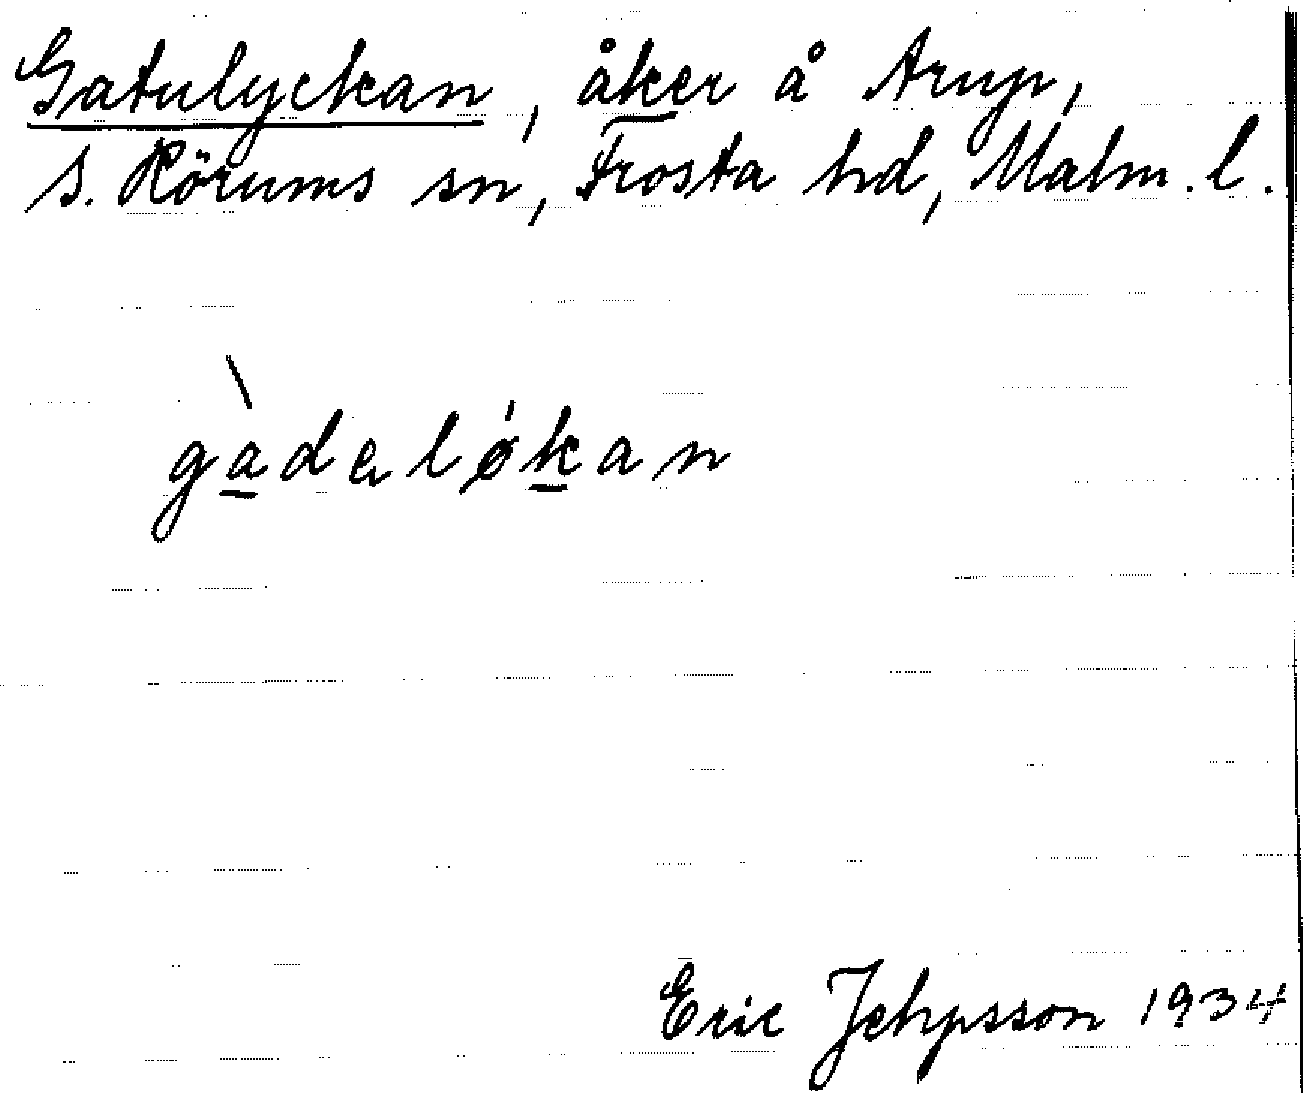 Gatulyckan, åker å Arup,
S. Rörums sn, Frosta hd, Malm. l.
gàdeløkan
Eric Jehpsson 1934